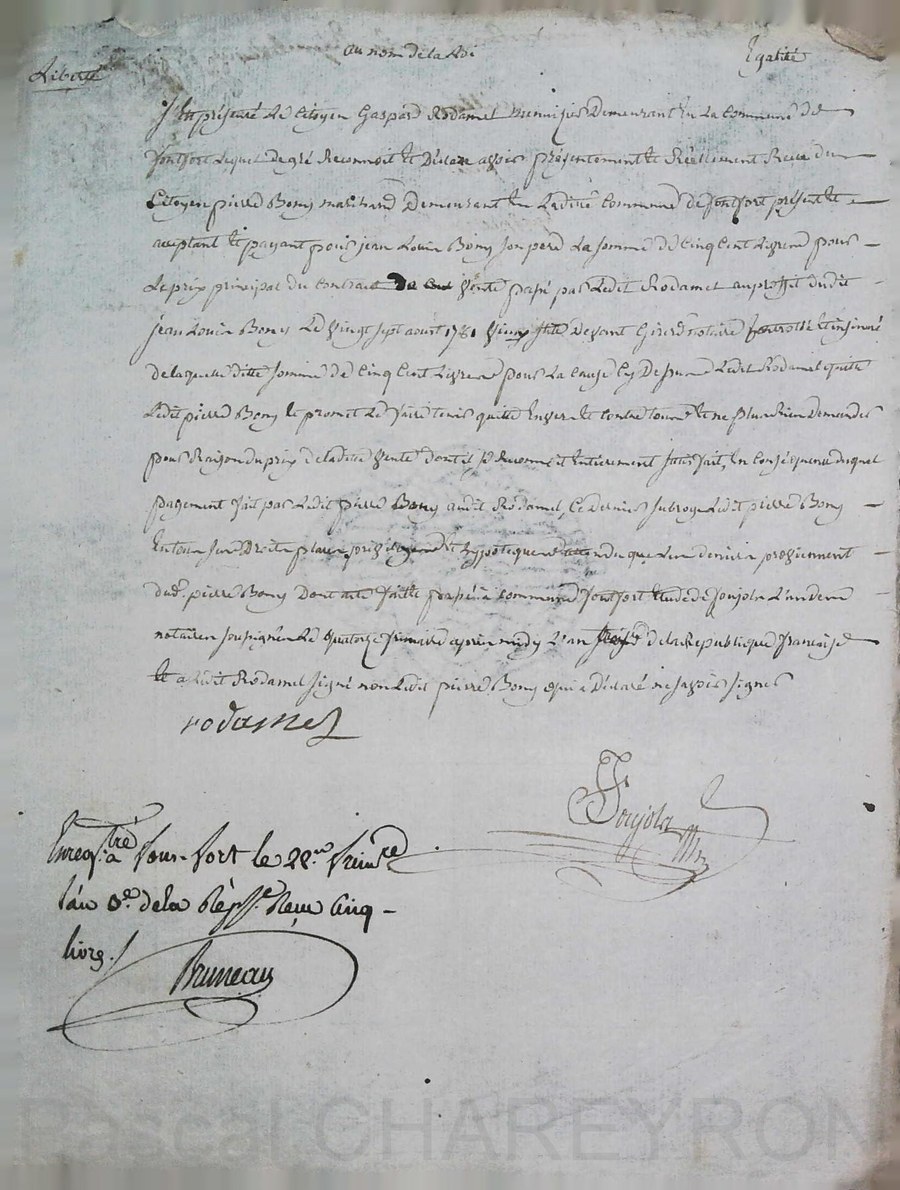 au nom de la Loi
Liberté
Egalité
présent le Citoyen Gaspard Rodamel Demeurant En La Commune de
fontfort Lequel De gré Reconnoit Et Déclare avoir présentement Et Réellement Receu du
Citoyen pierre Bony marchand Demeurant En Ladite Commune De fontfort présent Et
acceptant Et payant pour jean Louis Bony son pere La somme De Cinq Cent Livres pour
Le prix principal du Contrat De vente passé par Ledit Rodamel au proffit dudit
jean Louis Bony Le vingt sept aoust 1781 Devant Girard notaire
De laquelle ditte somme De Cinq Cent Livres pour La Cause Cy Dessus Ledit Rodamel quitte
Ledit pierre Bony Et promet Le faire tenir quitte Envers Et Contre tous Et ne plus Rien Demander
pour Raison du prix De Ladite vente Dont il se Reconnoit Entierement satisfait, En Conséquence duquel
payement fait par Ledit pierre Bony audit Rodamel, Ce Dernier subroge Ledit pierre Bony
En tous ses Droits place privilege Et hypoteque attendu que Les Deniers proviennent
dud. pierre Bony Dont acte fait Et passé a Commune fontfort Etude De Joujola L'un des
notaires soussignés Le quatorze frimaire apres midy L'an De La Republique francaise
Et a Ledit Rodamel signé non Ledit pierre Bony qui a Déclaré ne savoir signer
rodamel
Joujola
Enregistré a Fons-fort le 22 frimre
l'an 3e. de la Rép. Reçu cinq
livres
Bruneau
Pascal CHAREYRON